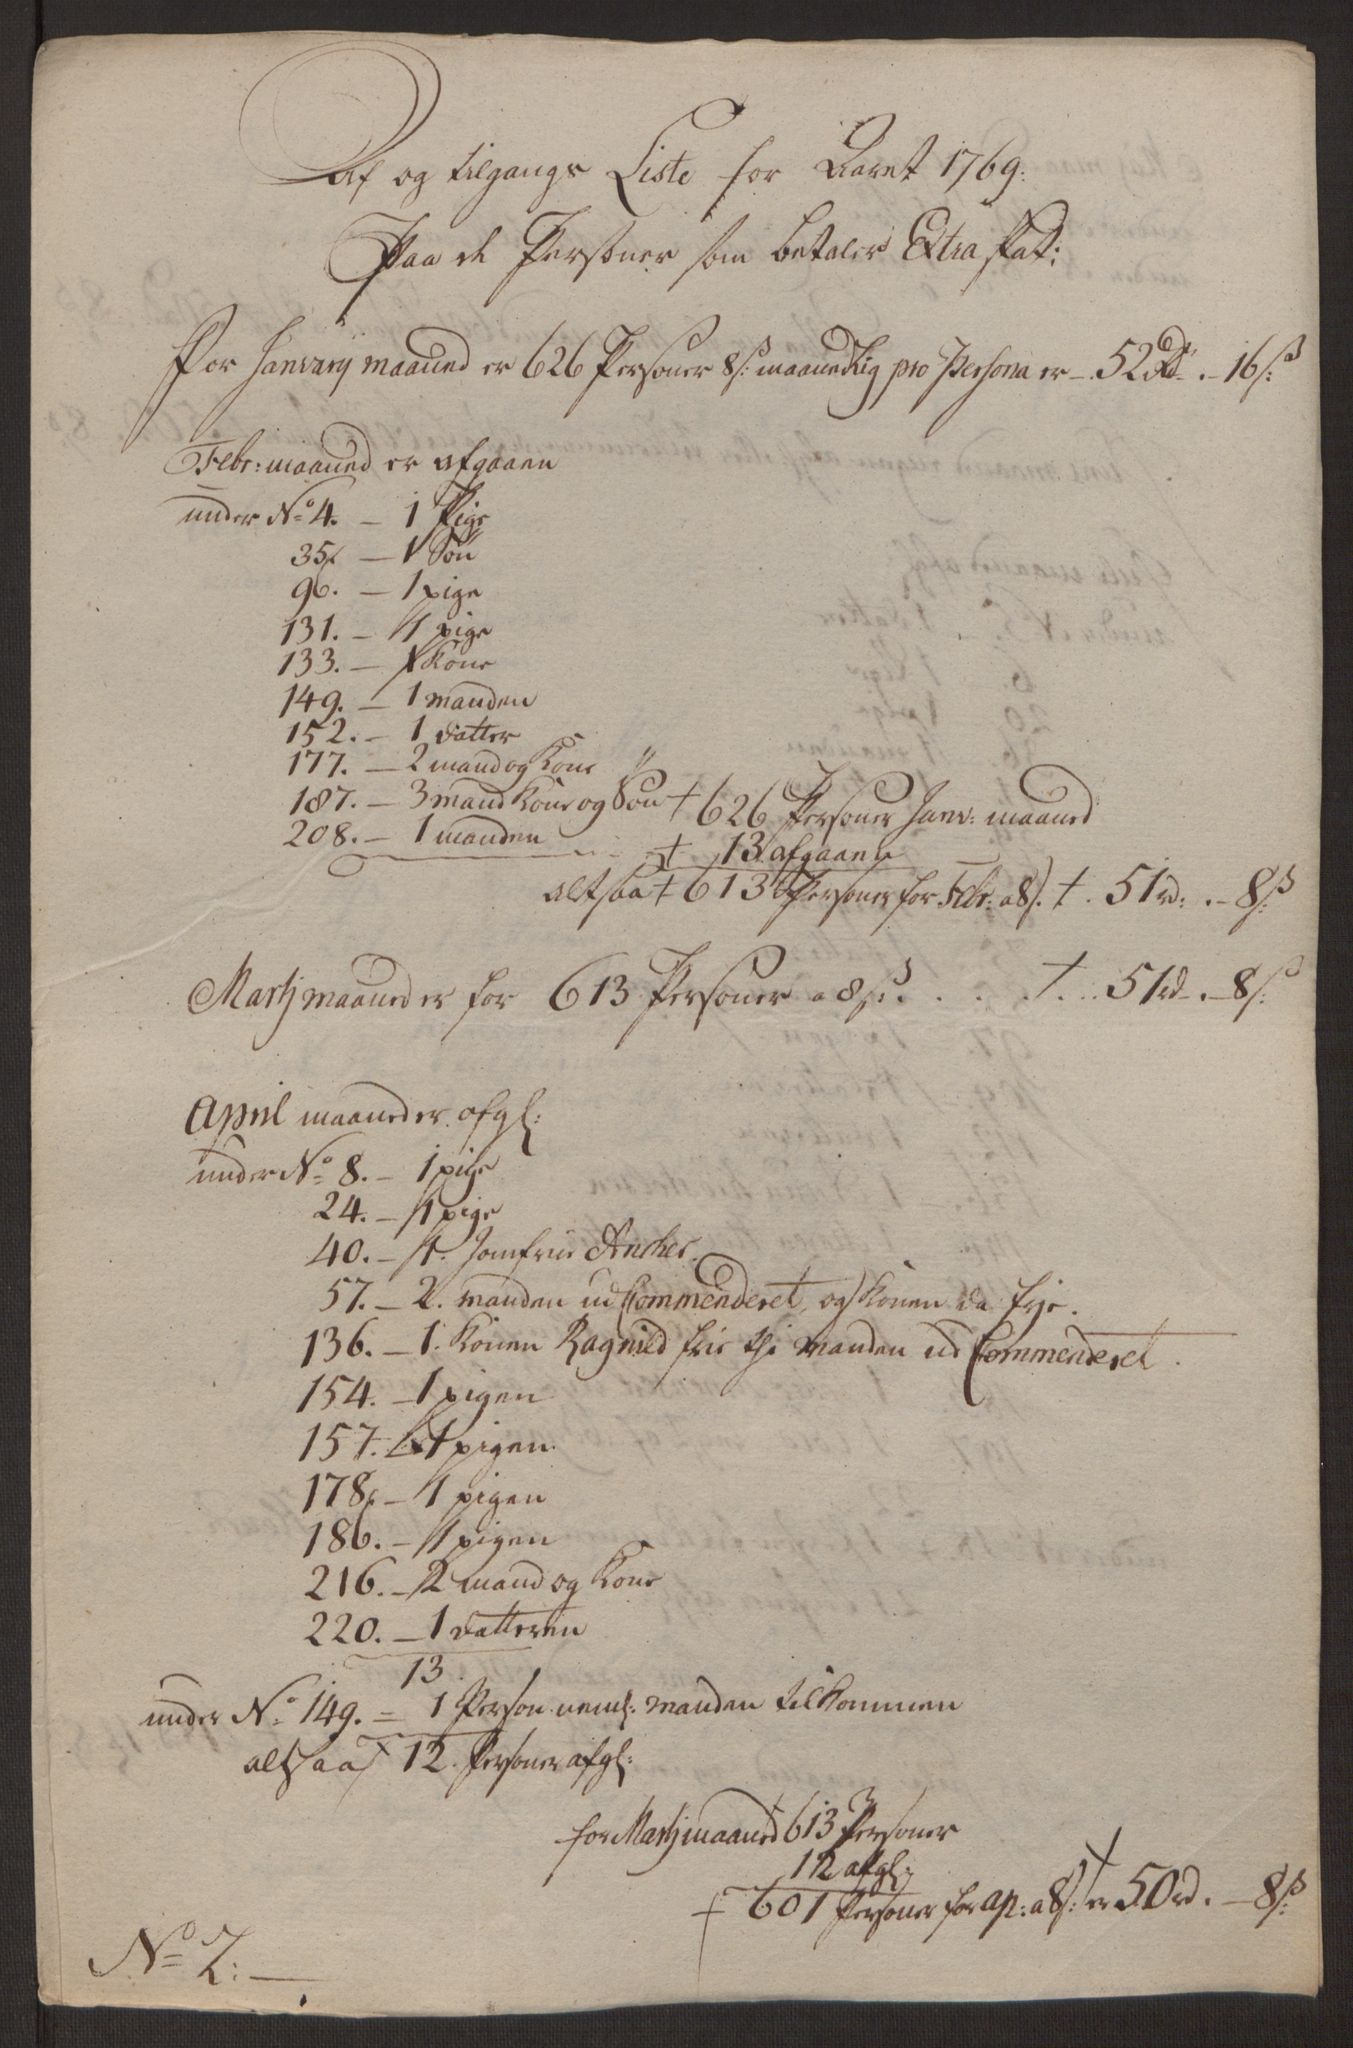 Af og tilgangs Liste for Aaret 1769.
Paa de Personer som betaler Extra skat:
For Janvarij maaned er 626 Personer 8 ß: maanedlig pro Persona er – 52 Rd. – 16 ß:
Febr: maaned er afgaaen
under No 4. – 1 Pige
35. – 1 Søn
96. – 1 pige
131. – 1 pige
133. – 1 Kone
149. – 1 manden
152. – 1 datter
177. – 2 mand og Kone
187. – 3 mand Kone og Søn + 626 Personer Janv: maaned
208. – 1 manden + 13 afgaaen
altsaa + 613 Personer for Febr: a 8 ß. + . 51 rd: . – 8 ß:
Martj maaned er for 613 Personer a 8 ß: . . . . + . . 51 rd – . – 8 ß:
April maaned er afgl:
under No 8. – 1 pige
24. – 1 pige
40. – 1. Jomfrue Ancher.
57. – 2. manden ud Commenderet, og Konen da frje.
136. – 1. Konen Ragnild frie thi manden ud Commenderet.
154. – 1 pigen
157. – 1 pigen.
178. – 1 pigen
186. – 1 pigen
216. – 2 mand og Kone
220. – 1 datteren
13
under No 149. = 1 Person neml: manden tilkommen
altsaa 12. Personer afgl:
for Martj maaned 613 Personer
12 afgl:
+ 601 Personer for ap: a 8 ß: er 50 rd. – 8 ß:
No 2: –